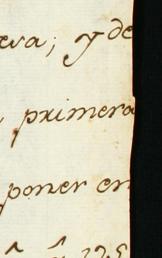 eva; y de
primera
poner en